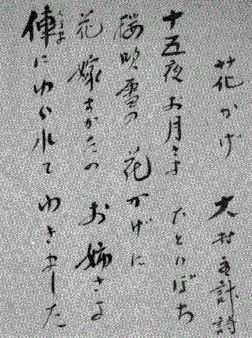 花かげ 大村主計詩
十五夜お月さま ひとりぼち
桜吹雪の 花かげに
花嫁すがたの お姉さま
俥にゆられて ゆきました